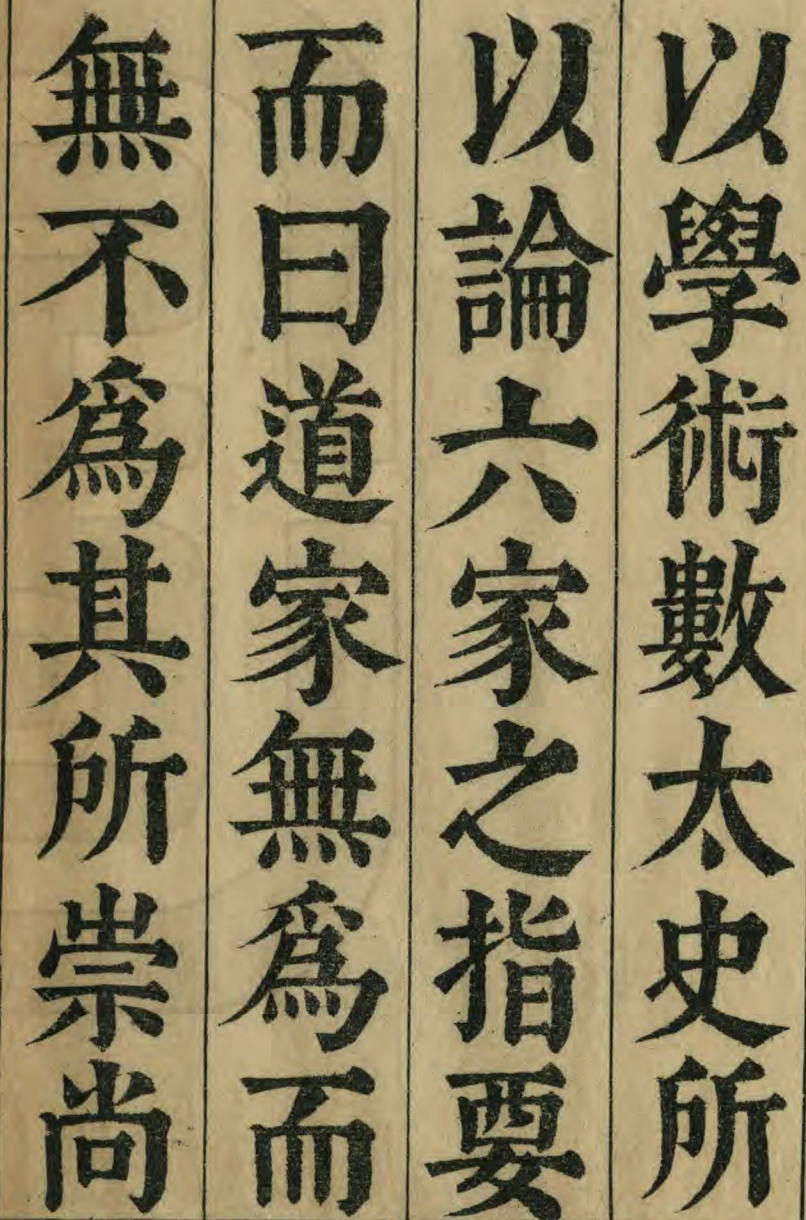 以學術數太史所
以論六家之指要
而曰道家無爲而
無不爲其所崇尚